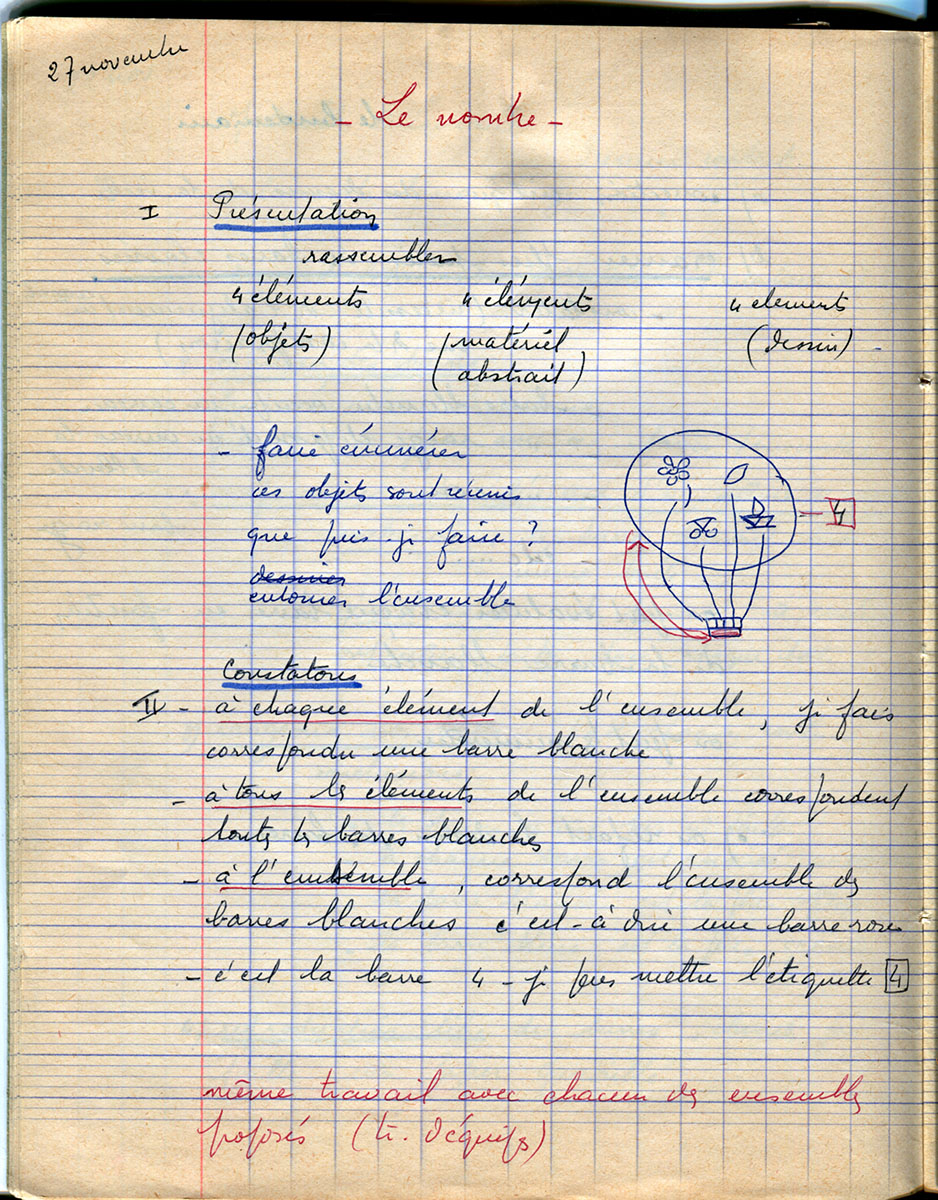 27 novembre
- Le nombre -
I Présentation
rassembler
4 éléments 4 éléments 4 elements
(objets) (matériel abstrait) (dessin)
- faire énumérer
ces objets sont réunis
que puis-je faire ?
dessiner
entourer l'ensemble
4
Constatons
II - à chaque élément de l'ensemble, je fais
correspondre une barre blanche
- à tous les éléments de l'ensemble correspondent
toutes les barres blanches
- à l'ensemble, correspond l'ensemble des
barres blanches c'est-à-dire une barre rose
- c'est la barre 4 - je peux mettre l'étiquette 4
même travail avec chacun des ensembles
proposés (tr. d'équipes)